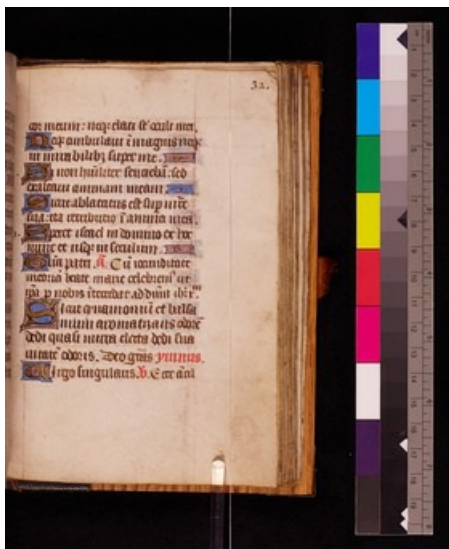 32.
cor meum: neqȝ elati sūt oculi mei.
Neqȝ ambulaui ī magnis neqȝ
in mirabilibȝ super me.
Si non hūiliter sentiebā: sed
exaltaui animam meam:
Sicut ablactatus est sup mr̄e
sua: ita retributio ī anima mea.
Speret israel in domino ex hoc
nunc et usqȝ in seculum.
Gl̄ia patri. A. Cū iocunditate
memoria beate marie celebrem9 ut
ip̄a p nobis intercedat ad dūm ihm̄ xp̄m
Sicut cynamomū et balsa
mum aromatizans odorē
dedi quasi mirra electa dedi sua
uitatē odoris. Deo grās ymnus.
Virgo singularis. V. Ecce ancil